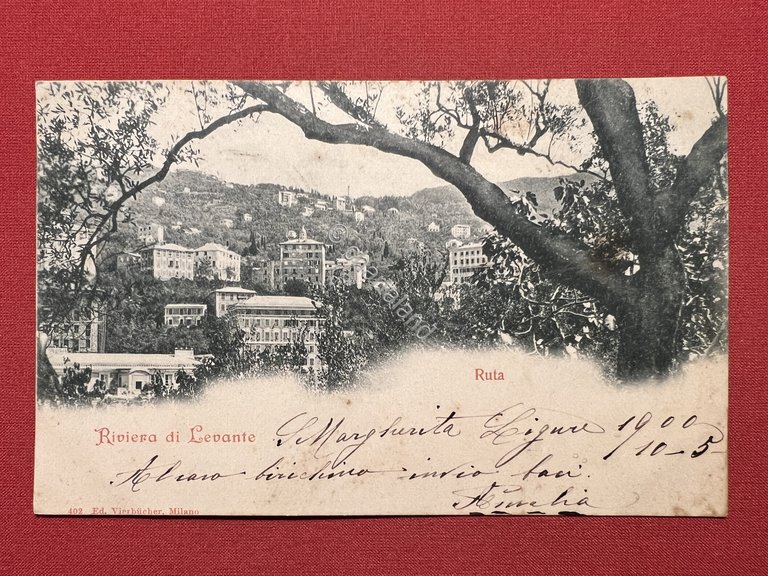 Ruta
Riviera di Levante
S. Margherita Ligure 1900
10-5
Al caro birichino invio baci.
Amalia
402 Ed. Vierbücher, Milano